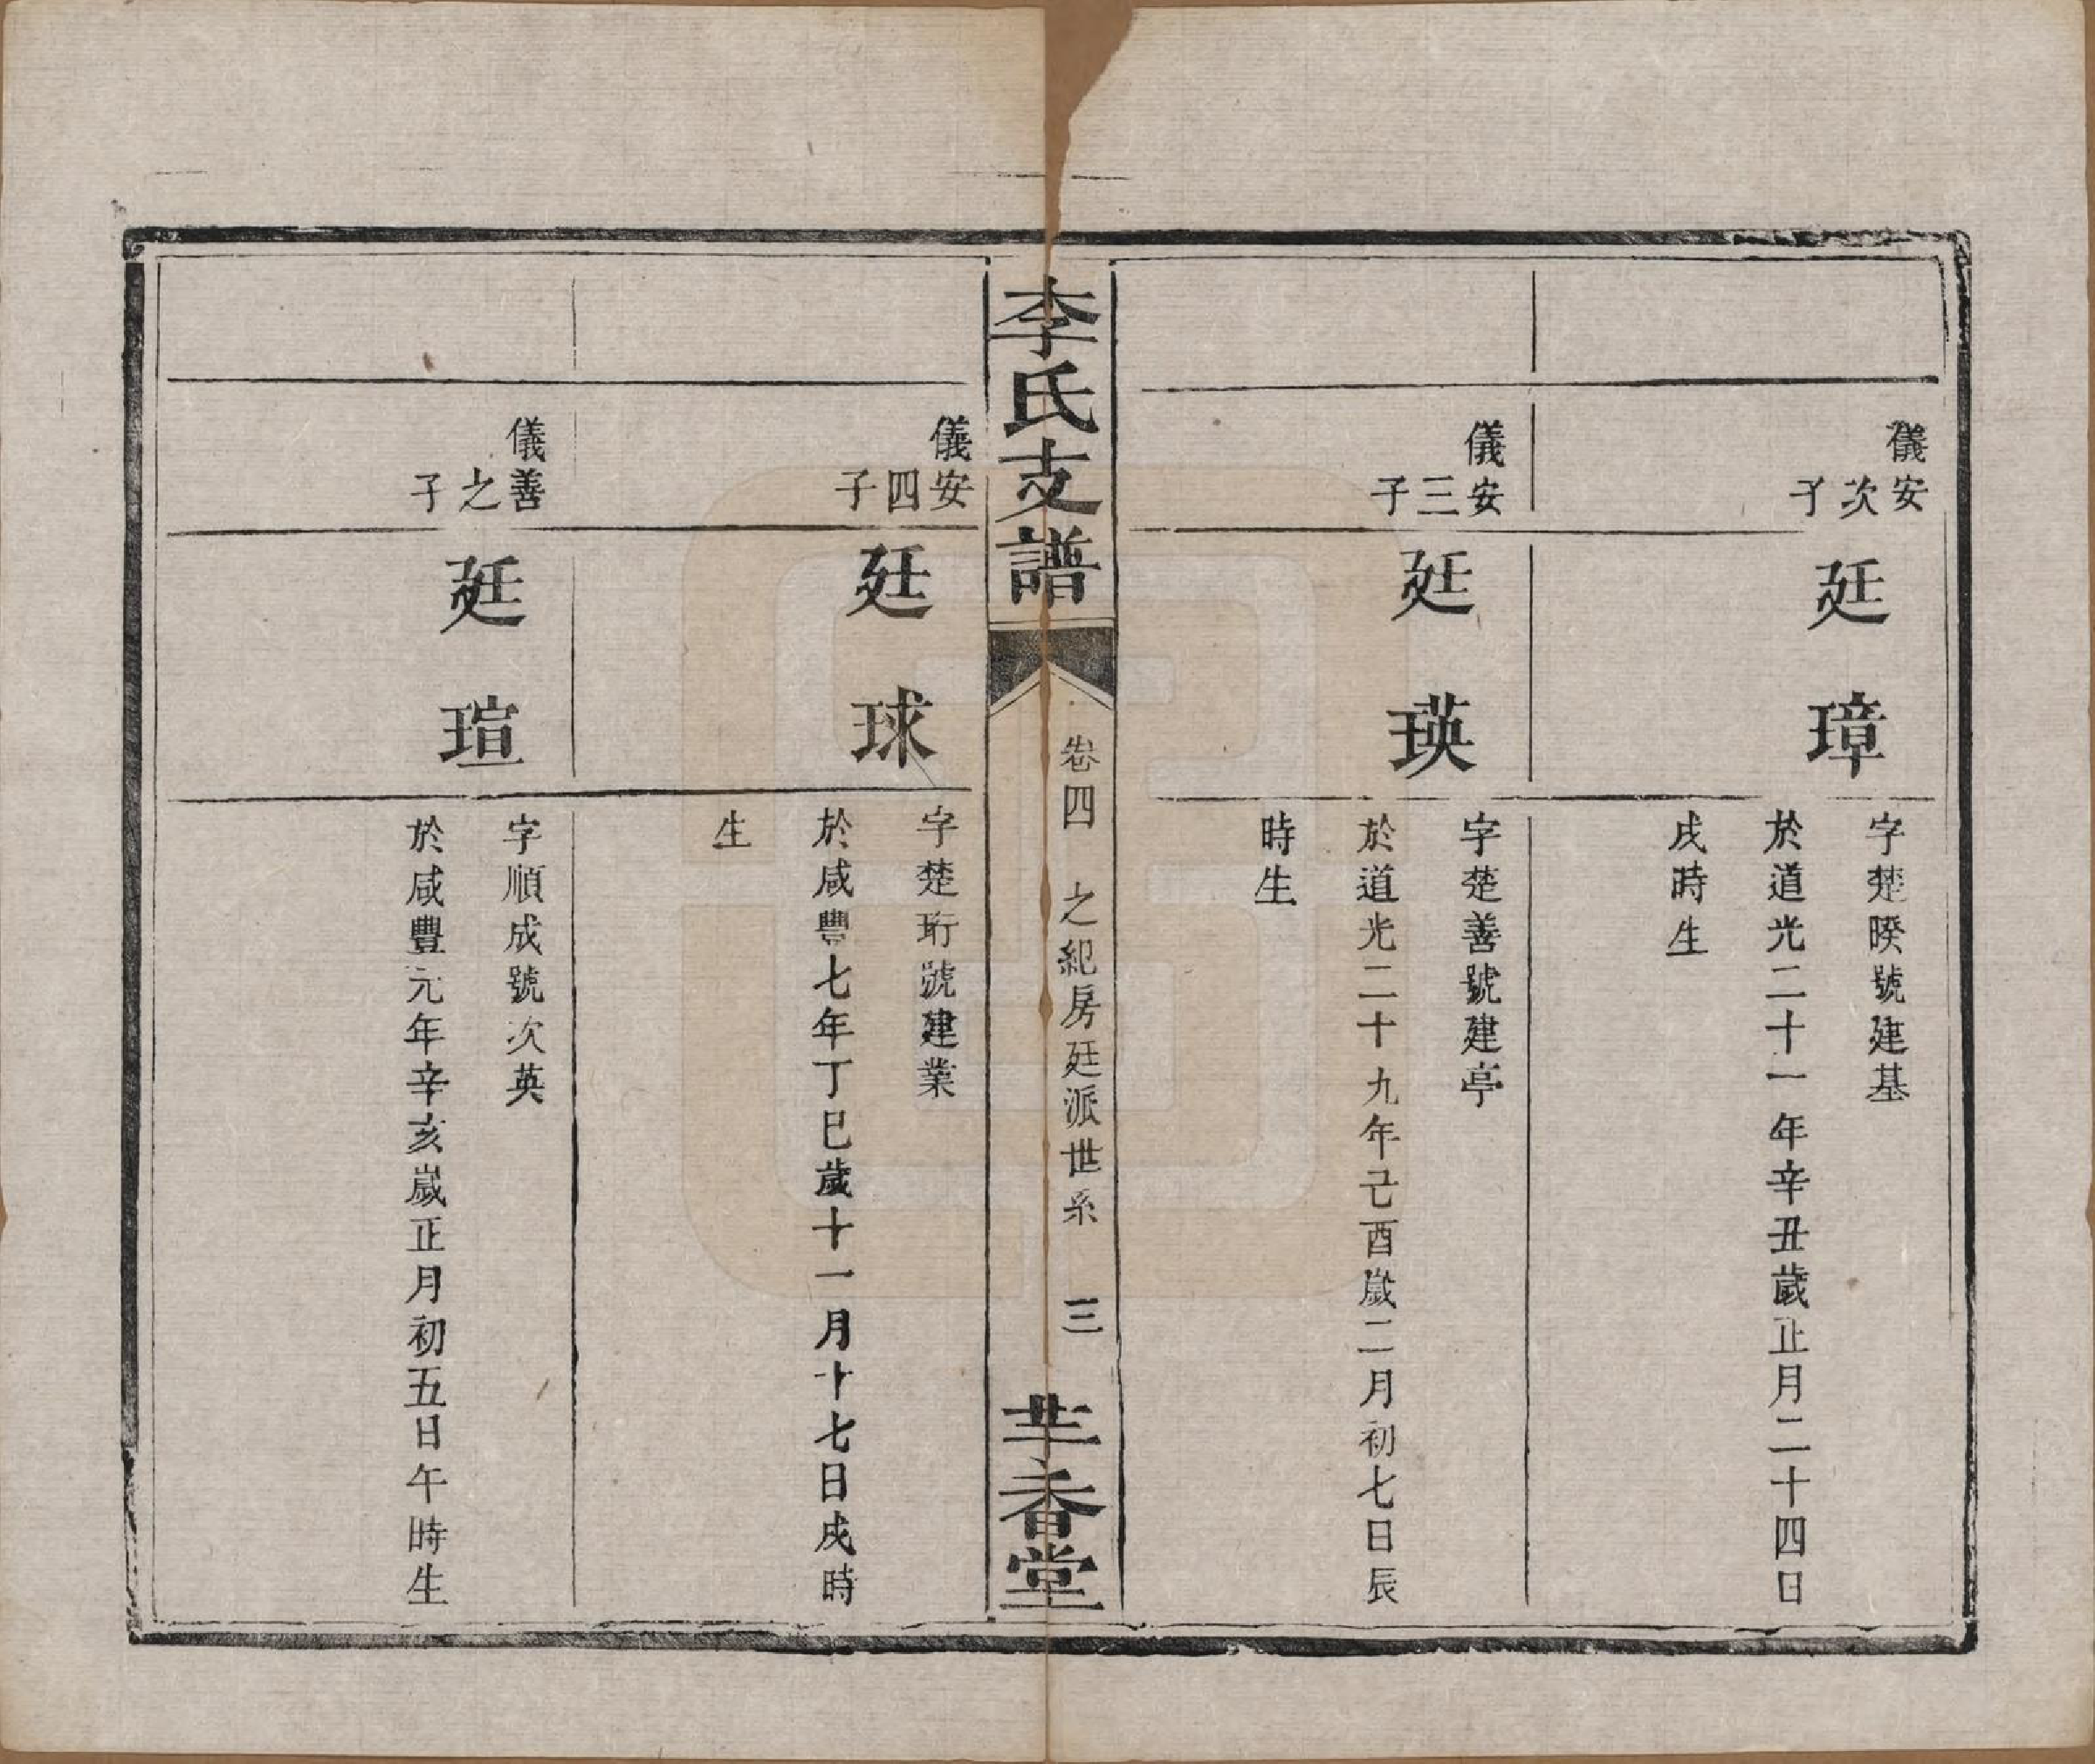 儀安
次子
廷璋
字楚暌號建基
於道光二十一年辛丑歲正月二十四日
戌時生
儀安
三子
廷瑛
字楚善號建亭
於道光二十九年己酉歲二月初七日辰
時生
李氏支譜
卷四 之紀房廷派世系 三
芉香堂
儀安
四子
廷球
字楚珩號建業
於咸豐七年丁巳歲十一月十七日戌時
生
儀善
之子
廷瑄
字順成號次英
於咸豐元年辛亥歲正月初五日午時生